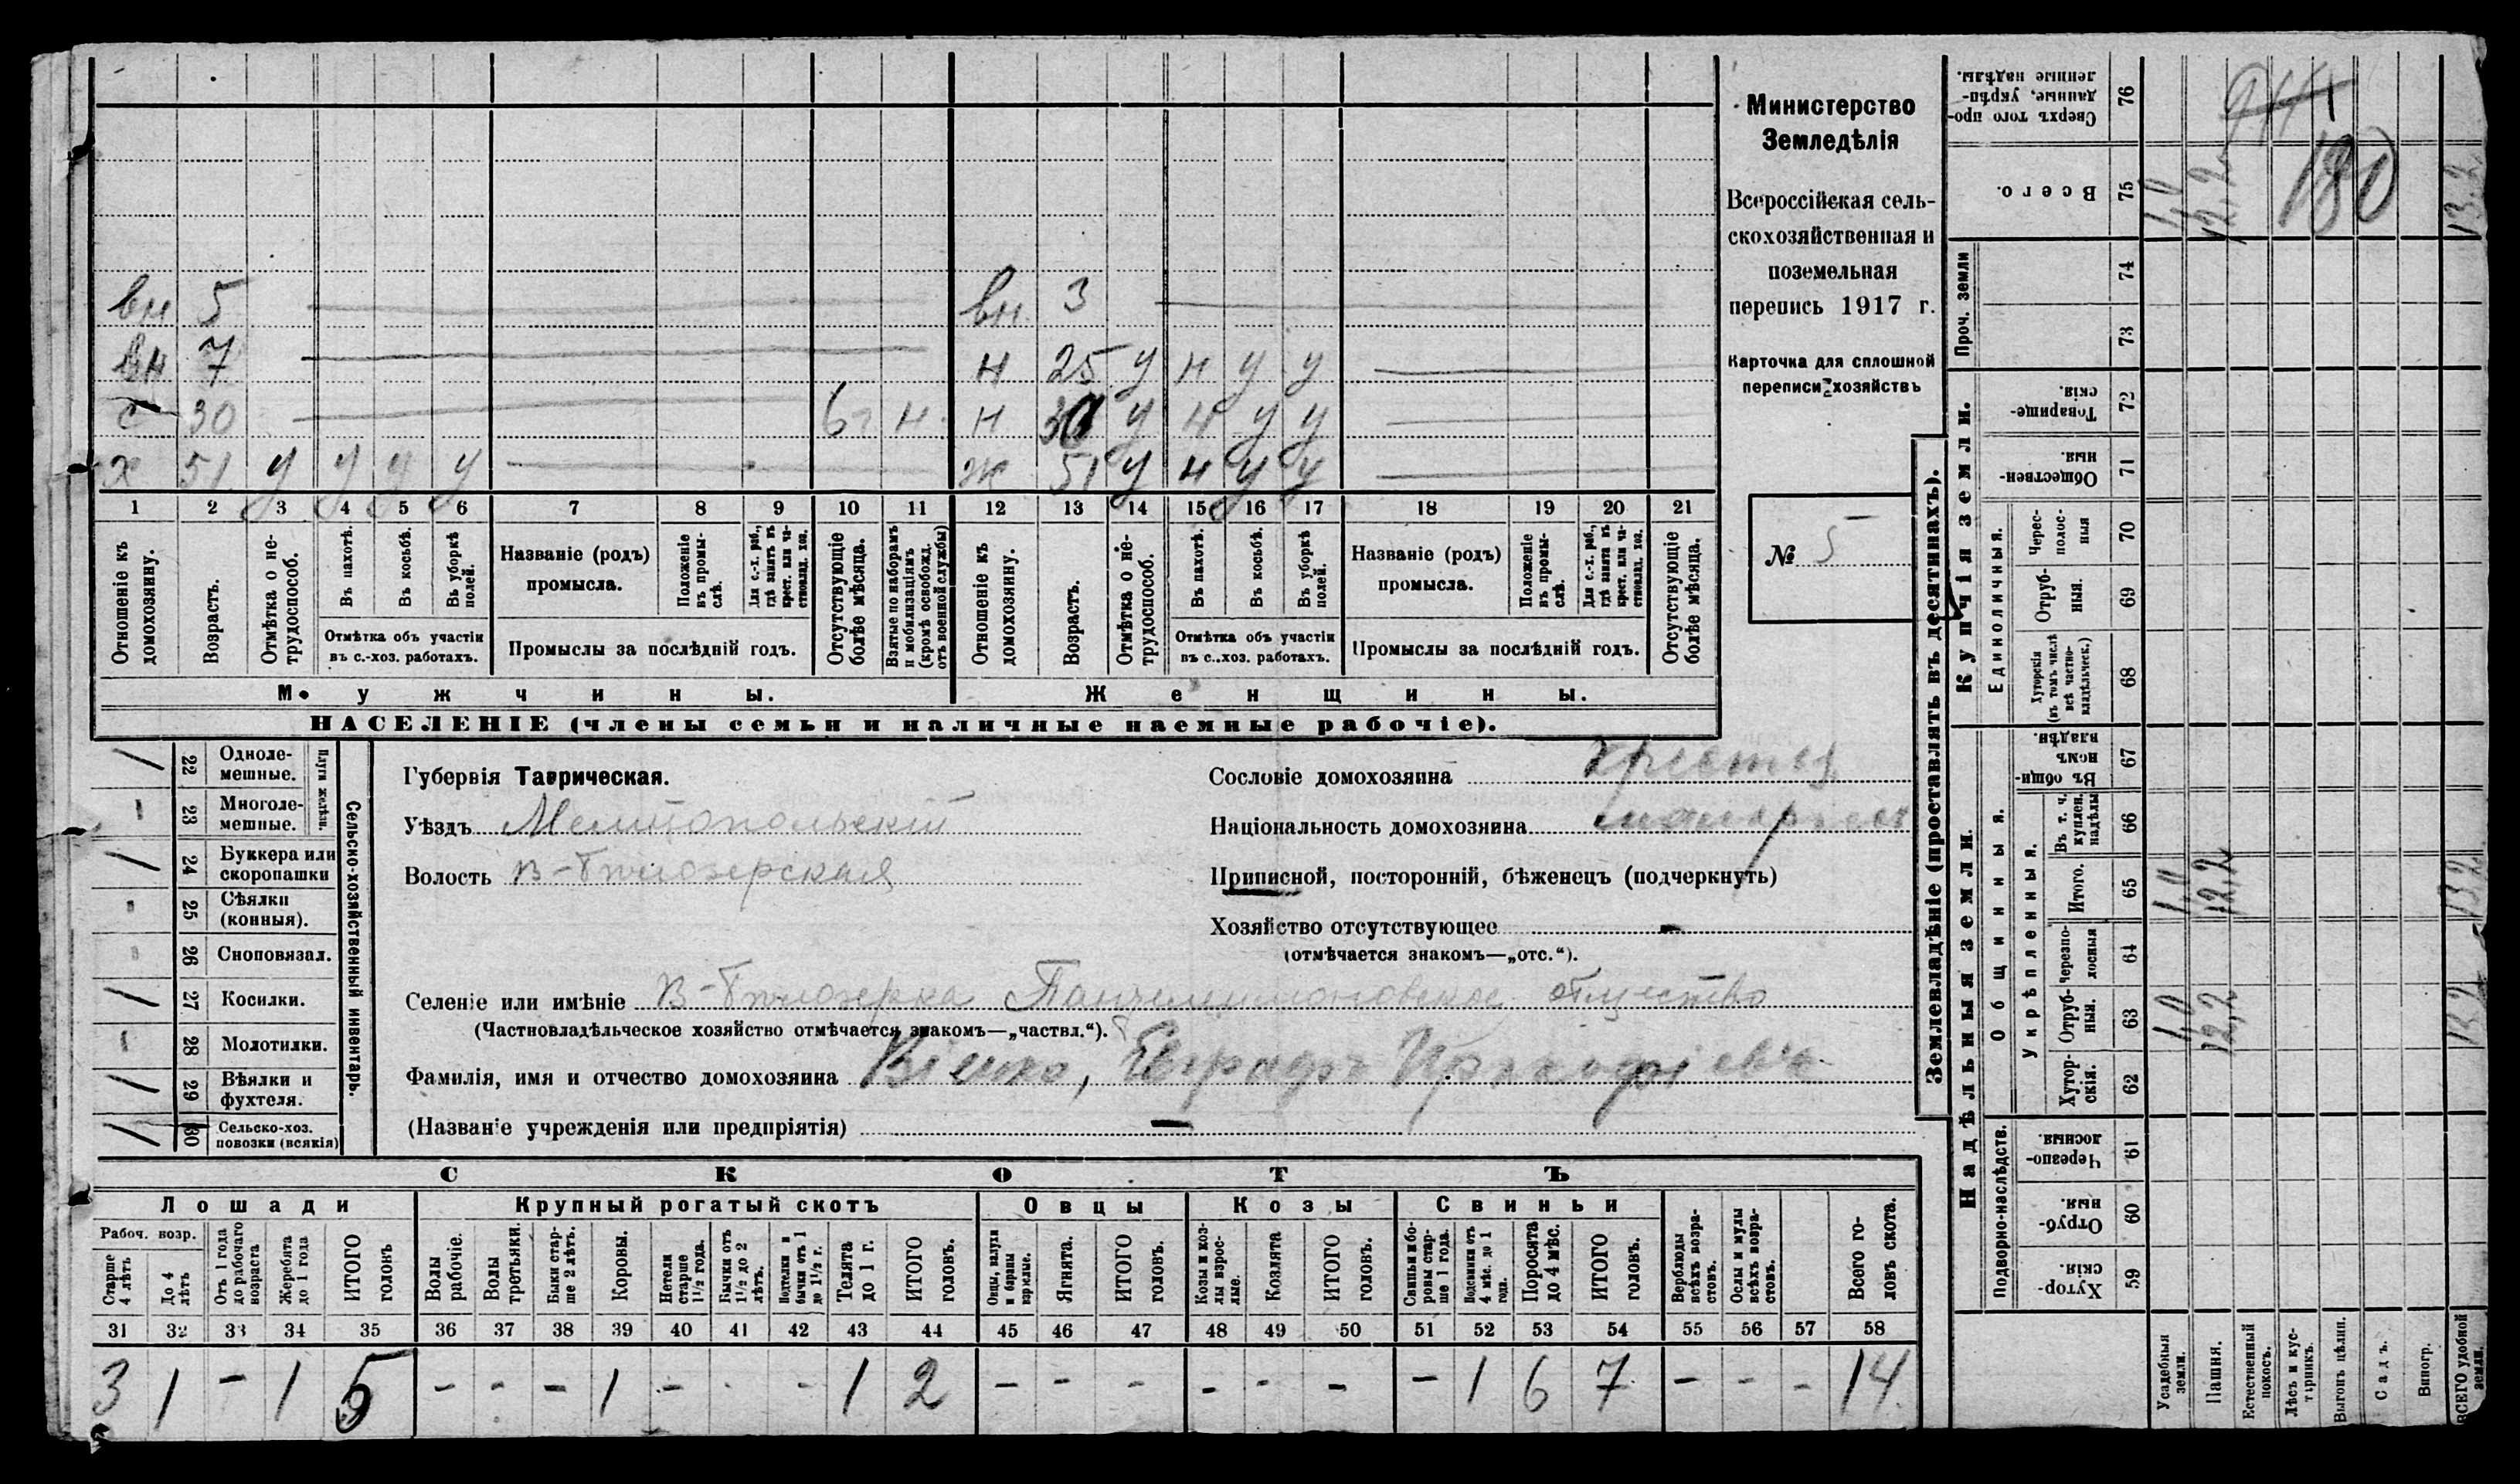 Министерство
Земледѣлія
Всероссійская сель-
скохозяйственная и
поземельная
перепись 1917 г.
Карточка для сплошной
переписи хозяйствъ
№ 5
вн 5
вн 7
с 30 н
х 51 у у у у
вн 3
н 25 у н у у
н 30 у н у у
ж 51 у н у у
1 2 3 4 5 6 7 8 9 10 11 12 13 14 15 16 17 18 19 20 21
Отношеніе къ домохозяину.
Возрастъ.
Отмѣтка о не-трудоспособ.
Въ пахотѣ.
Въ косьбѣ.
Въ уборкѣ полей.
Отмѣтка объ участіи
въ с.-хоз. работахъ.
Названіе (родъ)
промысла.
Положеніе въ промы-слѣ.
Для с.-х. раб., гдѣ занятъ въ крест. или ча-стновлад. хоз.
Промыслы за послѣдній годъ.
Отсутствующіе болѣе мѣсяца.
Взятые по наборамъ и мобилизаціямъ (кромѣ освобожд. отъ военной службы)
Отношеніе къ домохозяину.
Возрастъ.
Отмѣтка о не-трудоспособ.
Въ пахотѣ.
Въ косьбѣ.
Въ уборкѣ полей.
Отмѣтка объ участіи
въ с..хоз. работахъ.
Названіе (родъ)
промысла.
Положеніе въ промы-слѣ.
Для с.-х. раб., гдѣ занята въ крест. или ча-стновлад. хоз.
Промыслы за послѣдній годъ.
Отсутствующіе болѣе мѣсяца.
Мужчины.
Женщины.
НАСЕЛЕНІЕ (члены семьи и наличные наемные рабочіе).
Сельско-хозяйственный инвентарь.
Плуги желѣзн.
/ 22 Одноле-мешные.
- 23 Многоле-мешные.
/ 24 Буккера или скоропашки
- 25 Сѣялки (конныя).
- 26 Сноповязал.
/ 27 Косилки.
- 28 Молотилки.
/ 29 Вѣялки и фухтеля.
/ 30 Сельско-хоз. повозки (всякія)
Губернія Таврическая.
Уѣздъ Мелитопольскій
Волость В-Бѣлозерская
Сословіе домохозяина
Національность домохозяина
Приписной, посторонній, бѣженецъ (подчеркнуть)
Хозяйство отсутствующее -
(отмѣчается знакомъ—„отс.“).
Селеніе или имѣніе В-Бѣлозерка Пантелеимоновское общество
(Частновладѣльческое хозяйство отмѣчается знакомъ—„частвл.“).
Фамилія, имя и отчество домохозяина
(Названіе учрежденія или предпріятія) —
СКОТЪ
Лошади
Крупный рогатый скотъ
Овцы
Козы
Свиньи
Рабоч. возр.
Старше 4 лѣтъ
До 4 лѣтъ
Отъ 1 года до рабочаго возраста
Жеребята до 1 года
ИТОГО головъ
Волы рабочіе.
Волы третьяки.
Быки стар-ше 2 лѣтъ.
Коровы.
Нетели старше 1½ года.
Бычки отъ 1½ до 2 лѣтъ.
Подтелки и бычки отъ 1 до 1½ г.
Телята до 1 г.
ИТОГО головъ.
Овцы, валухи и бараны взрослые.
Ягнята.
ИТОГО головъ.
Козы и коз-лы взрос-лые.
Козлята
ИТОГО головъ.
Свиньи и бо-ровы стар-ше 1 года.
Подсвинки отъ 4 мѣс. до 1 года.
Поросята до 4 мѣс.
ИТОГО головъ.
Верблюды всѣхъ возра-стовъ.
Ослы и мулы всѣхъ возра-стовъ.
Всего го-ловъ скота.
31 32 33 34 35 36 37 38 39 40 41 42 43 44 45 46 47 48 49 50 51 52 53 54 55 56 57 58
3 1 - 1 5 - - - 1 - - - 1 2 - - - - - - - 1 6 7 - - - 14
Землевладѣніе (проставлять въ десятинахъ).
Надѣльныя земли.
Купчія земли.
Проч. земли
Подворно-наслѣдств.
Общинныя.
Укрѣпленныя.
Единоличныя.
Хутор-скія. 59
Отруб-ныя. 60
Черезпо-лосныя. 61
Хутор-скія. 62
Отруб-ныя. 63 1,0 12,2 13,2
Черезпо-лосныя 64
Итого. 65 1,0 12,2 13,2
Въ т. ч. куплен. надѣлы 66
Въ общин-номъ владѣн. 67
Хуторскія (въ томъ числѣ всѣ частно-владѣльческ.) 68
Отруб-ныя. 69
Черес-полос-ныя 70
Обществен-ныя. 71
Товарище-скія. 72
73
74
Всего. 75 1,0 12,2 13,2
Сверхъ того про-данные, укрѣп-ленные надѣлы. 76
180
Усадебныя земли.
Пашня.
Естественный покосъ.
Лѣсъ и кус-тарникъ.
Выгонъ цѣлин.
Садъ.
Виногр.
ВСЕГО удобной земли.